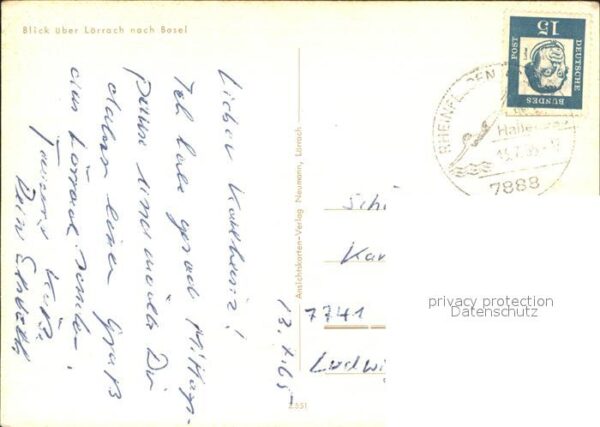 Blick über Lörrach nach Basel
Lieber Karlheinz!
Ich habe grad Mittags-
pause und möchte Dir
einen Gruß
aus Lörrach senden.
Dein
13.7.65
Ansichtskarten-Verlag Neumann, Lörrach
2.551
15
DEUTSCHE
BUNDES
POST
RHEINFELDEN
7888
Schü
Kar
7741
Ludwig
privacy protection
Datenschutz